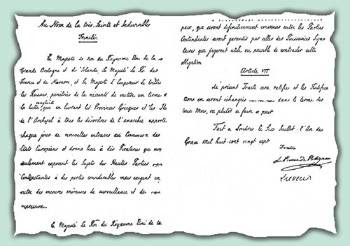 Au Nom de la très Sainte et Indivisible
Trinité
Sa Majesté le Roi du Royaume Uni de la
Grande Bretagne et d'Irlande, Sa Majesté le Roi de
France et de Navarre, et Sa Majesté l'Empereur de toutes
les Russies, pénétrées de la nécessité de mettre un terme à
la lutte qui en livrant les Provinces Grecques et les Iles
de l'Archipel à tous les désordres de l'anarchie apporte
chaque jour de nouvelles entraves au Commerce des
États Européens et donne lieu à des Pirateries qui non
seulement exposent les Sujets des Hautes Parties
Contractantes à des pertes considérables mais exigent en
outre des mesures onéreuses de surveillance et de
Sa Majesté le Roi du Royaume Uni de la
que, qui seront définitivement convenus entre les Parties
Contractantes seront garantis par celles des Puissances Signa-
taires qui jugeront utile ou possible de contracter cette
obligation
Article VII
Le présent Traité sera ratifié et les Ratifica-
tions en seront échangées dans le terme de
deux Mois, ou plutôt si faire se peut
Fait à Londres le Six Juillet l'An de
Grace Mil huit cent vingt sept
Le Prince de Polignac